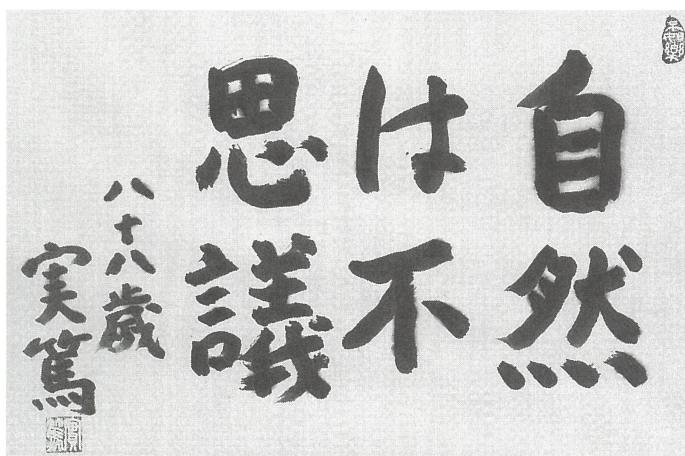 自然
は不
思議
八十八歳
実篤